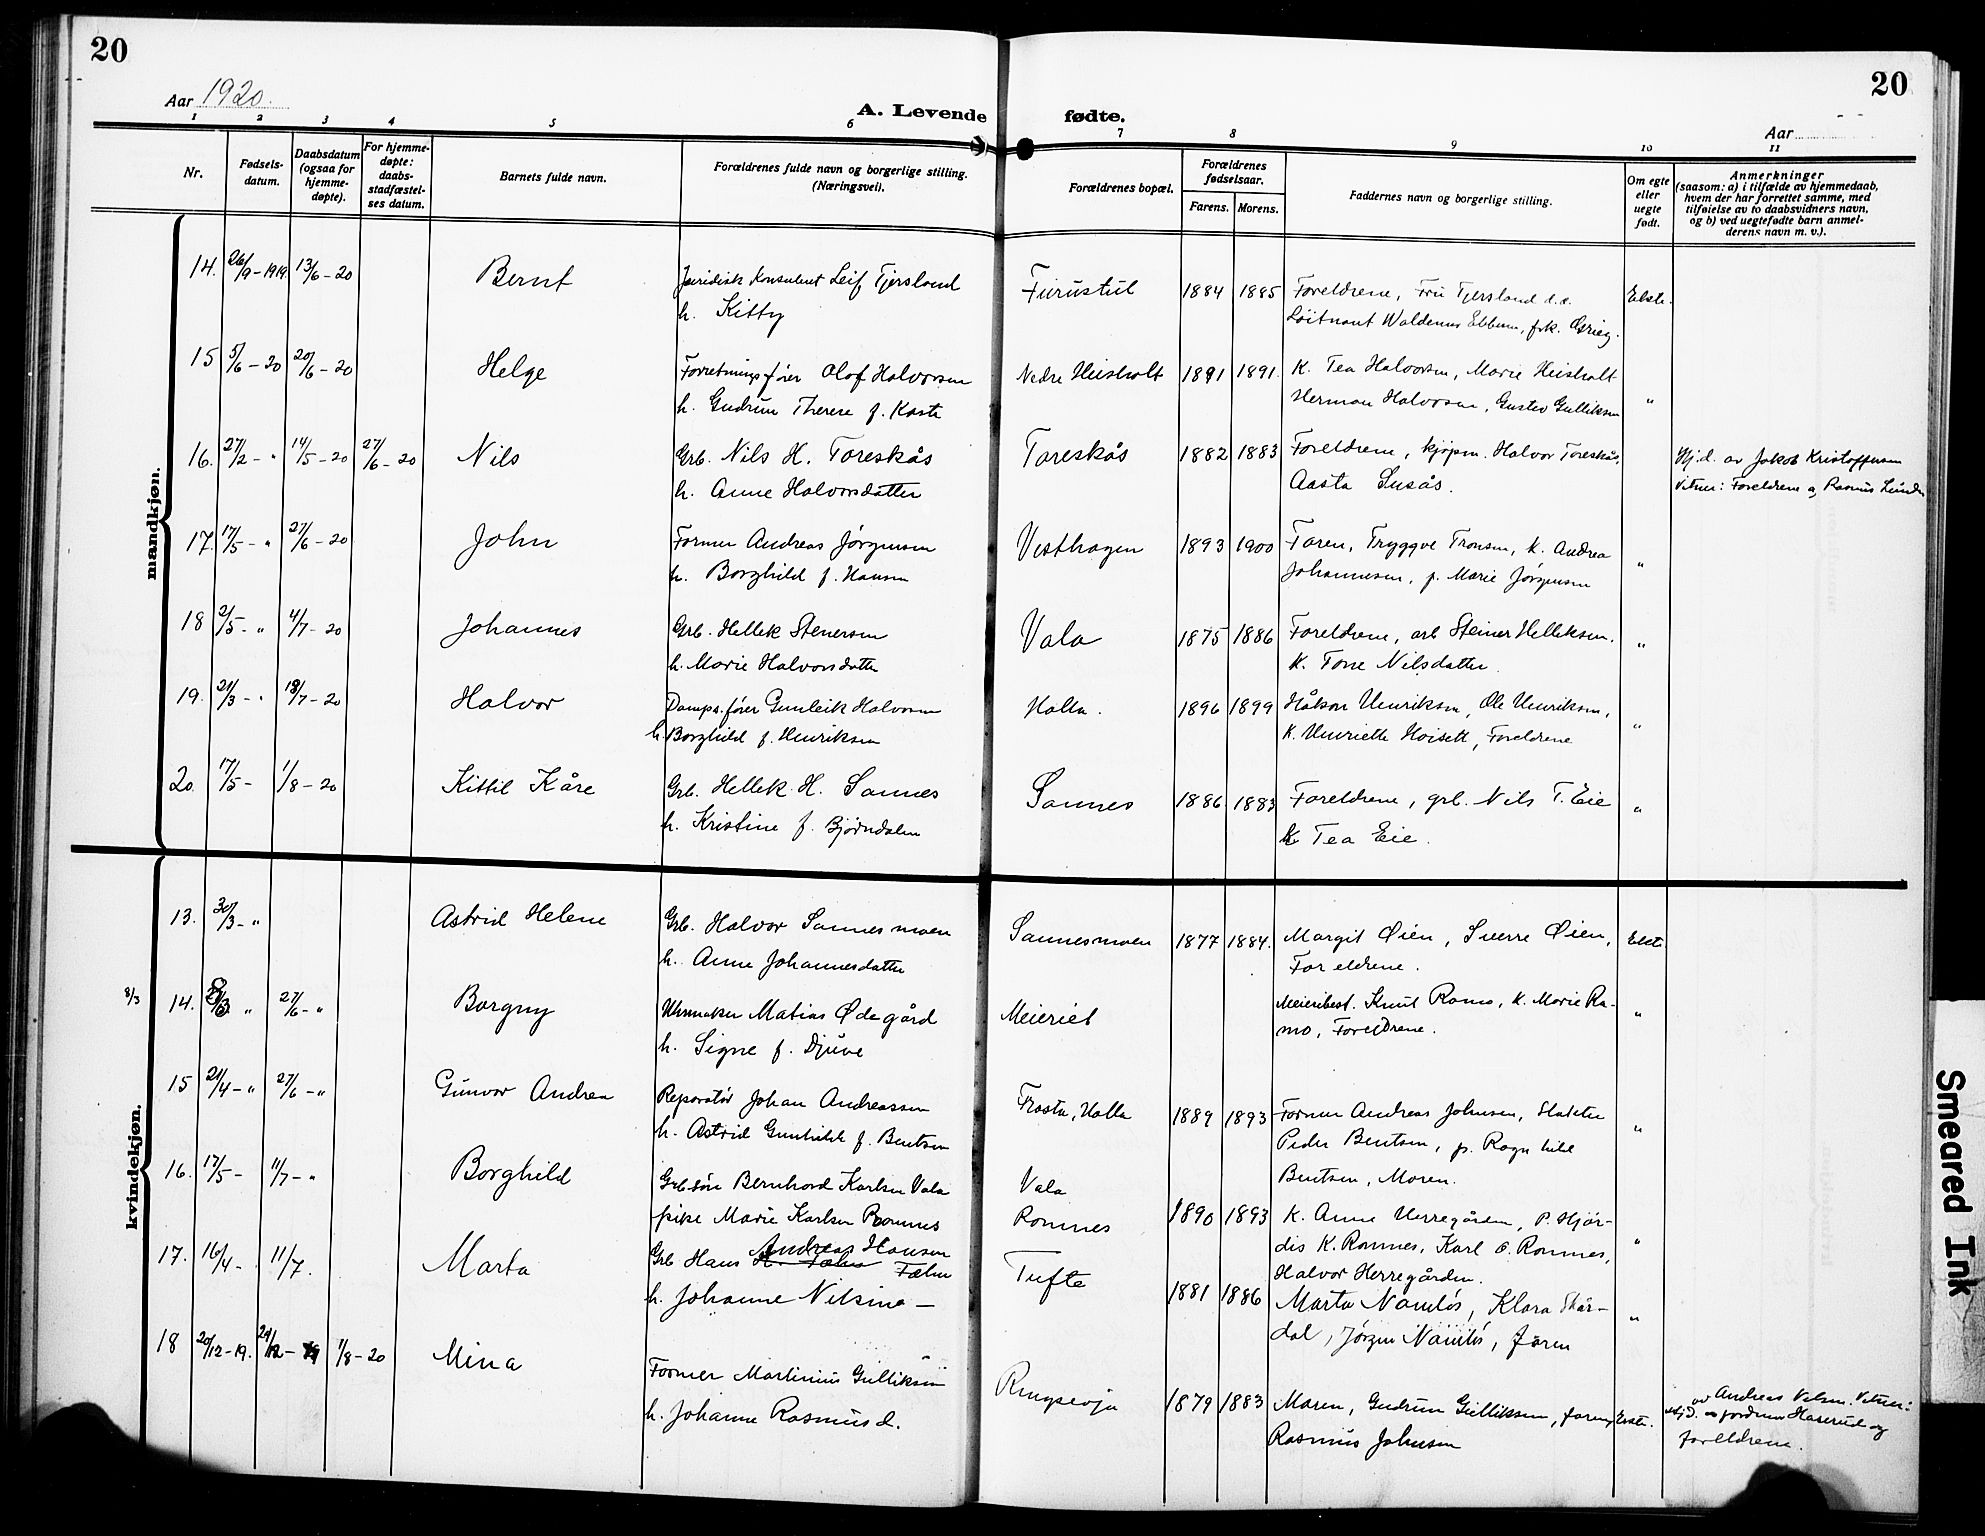 20
20
Aar 1920.
A. Levende fødte.
Aar
1 2 3 4 5 6 7 8 9 10 11
Nr.
Fødsels-
datum.
Daabsdatum
(ogsaa for
hjemme-
døpte).
For hjemme-
døpte:
daabs-
stadfæstel-
ses datum.
Barnets fulde navn.
Forældrenes fulde navn og borgerlige stilling.
(Næringsvei).
Forældrenes bopæl.
Forældrenes
fødselsaar.
Farens. Morens.
Faddernes navn og borgerlige stilling.
Om egte
eller
uegte
født.
Anmerkninger
(saasom: a) i tilfælde av hjemmedaab,
hvem der har forrettet samme, med
tilføielse av to daabsvidners navn,
og b) ved uegtefødte barn anmel-
derens navn m. v.).
mandkjøn.
14. 26/9-1919 13/6-20 Bernt Juridisk Konsulent Leif Tjersland Furustul 1884 1885 Foreldrene, Fru Tjersland d.e. Ekte.
h. Kitty Løitnant Waldemar Ebbum, frk. Grieg.
15 5/6-20 20/6-20 Helge Forretningsfører Olof Halvorsen Nedre Heisholt 1891 1891. K. Tea Halvorsen, Marie Heisholt
h. Gudrun Therese f. Kaste Herman Halvorsen, Gustav Gulliksen "
16. 27/2-" 14/5-20 27/6-20 Nils Grb. Nils H. Toreskås Toreskås 1882 1883 Foreldrene, kjøpm. Halvor Toreskås, Hj.d. av Jakob Kristoffersen
h. Anne Halvorsdatter Aasta Susås. Vitner: Foreldrene og Rasmus Lunde
17. 17/5-" 27/6-20 John Former Andreas Jørgensen Vesthagen 1893 1900 Faren, Tryggve Tronsen, K. Andrea "
h. Borghild f. Hansen Johannesen, p. Marie Jørgensen
18 2/5-" 4/7-20 Johannes Grb. Hellek Stenersen Vala 1875 1886 Foreldrene, arb Steiner Helleksen. "
h. Marie Halvorsdatter K. Tone Nilsdatter.
19. 21/3-" 18/7-20 Halvor Damps.fører Gunleik Halvorsen Holla. 1896 1899 Håkon Henriksen, Ole Henriksen, "
h. Borghild f. Henriksen K. Henriette Hoisett, Foreldrene
20. 17/5- 1/8-20 Kittil Kåre Grb. Hellek H. Sannes Sannes 1886 1883 Foreldrene, grb. Nils T. Eie "
h. Kristine f. Bjørndalen K. Tea Eie.
kvindekjøn.
13. 30/3-" Astrid Helene Grb. Halvor Sannesmoen Sannesmoen 1877 1884. Margit Øien, Sverre Øien, Ekte.
h. Anne Johannesdatter Foreldrene.
8/3 14. 8/3 " 27/6-" Borgny Urmaker Matias Ødegård Meieriet Meieribest. Knut Ramo, K. Marie Ra- "
h. Signe f. Djuve mo, Foreldrene.
15 21/4-" 27/6-" Gunvor Andrea Reparatør Johan Andreassen Frosta, Holla 1889 1893 Former Andreas Johnsen, "
h. Astrid Gunhild f. Bentsen Peder Bentsen, p. Ragnhild
Bentsen, Moren.
16. 17/5- 11/7-" Borghild Grb.søn Bernhard Karlsen Vala Vala 1890 1893 K. Anne Herregården, P. Hjør- "
pike Marie Karlsen Romnes Romnes dis K. Romnes, Karl O. Romnes,
Halvor Herregården.
17. 16/4- 11/7. Marta Grb Hans Andreas Hansen Fæhn Tufte 1881 1886 Marta Namløs, Klara Skår- "
h. Johanne Nilsine — dal, Jørgen Namløs, Faren
18 20/12-19. 29/12-19 1/8-20 Mina Former Martinius Gulliksen Ringsevja 1879 1883 Maren, Gudrun Gulliksen, faren, Ekte. av Andreas Nelsen. Vitner:
h. Johanne Rasmusd. Rasmus Johnsen Hj.d. jordmor Haserud og
foreldrene.
Smeared Ink